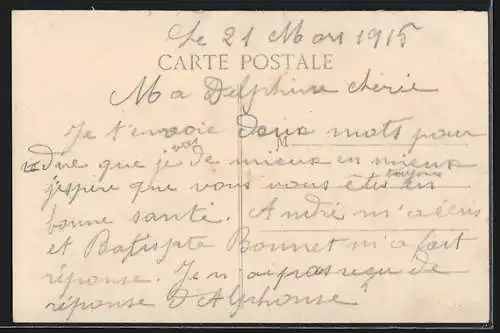 Le 21 Mars 1915
CARTE POSTALE
Ma Delphine chérie
Je t'envoie deux mots pour
dire que je vas de mieux en mieux
j'espire que vous vous êtes toujours en
bonne santé. André m'a écris
et Baptiste Bonnet m'a fait
réponse. Je n'ai pas reçu de
réponse d'Alphonse